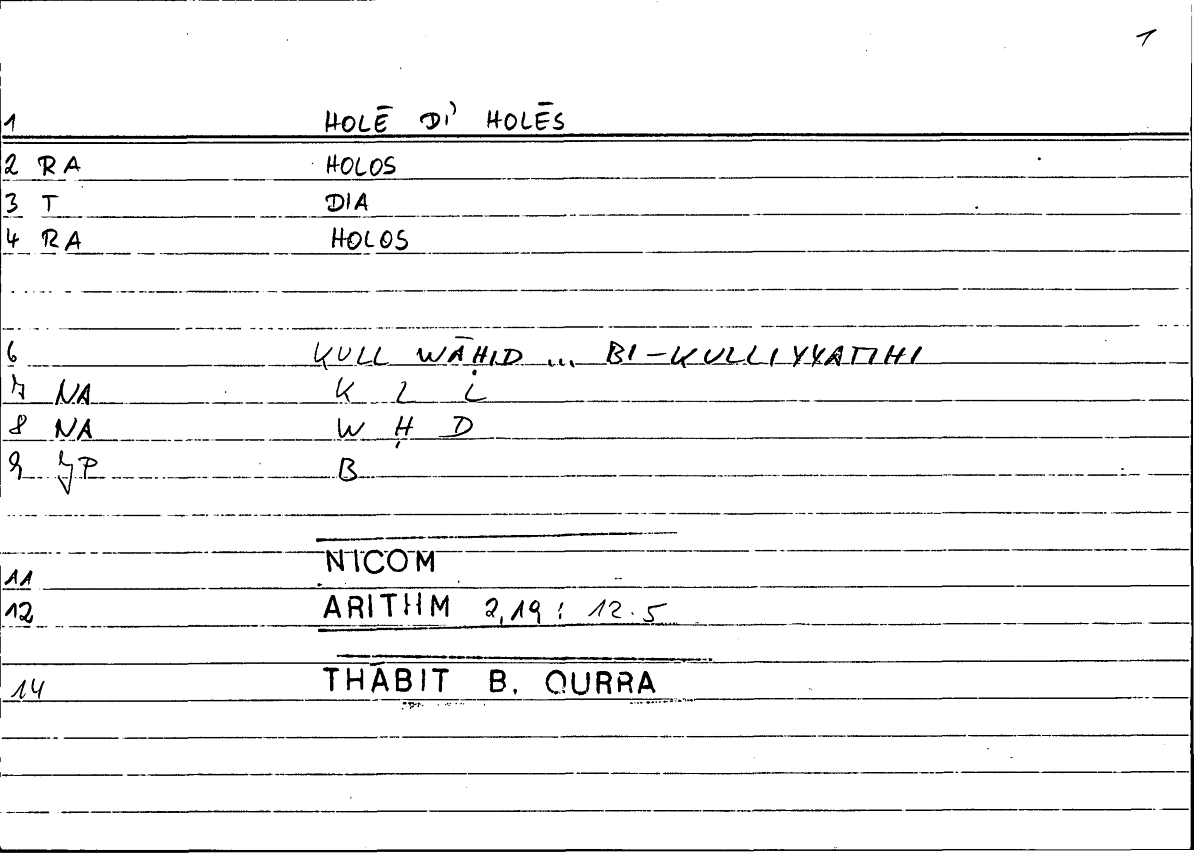 1
1 HOLĒ DI' HOLĒS
2 RA HOLOS
3 T DIA
4 RA HOLOS
6 KULL WĀḤID ... BI-KULLIYYATIHI
7 NA K L L
8 NA W Ḥ D
9 JP B
11 NICOM
12 ARITHM 2,19 : 12.5
14 THĀBIT B. QURRA